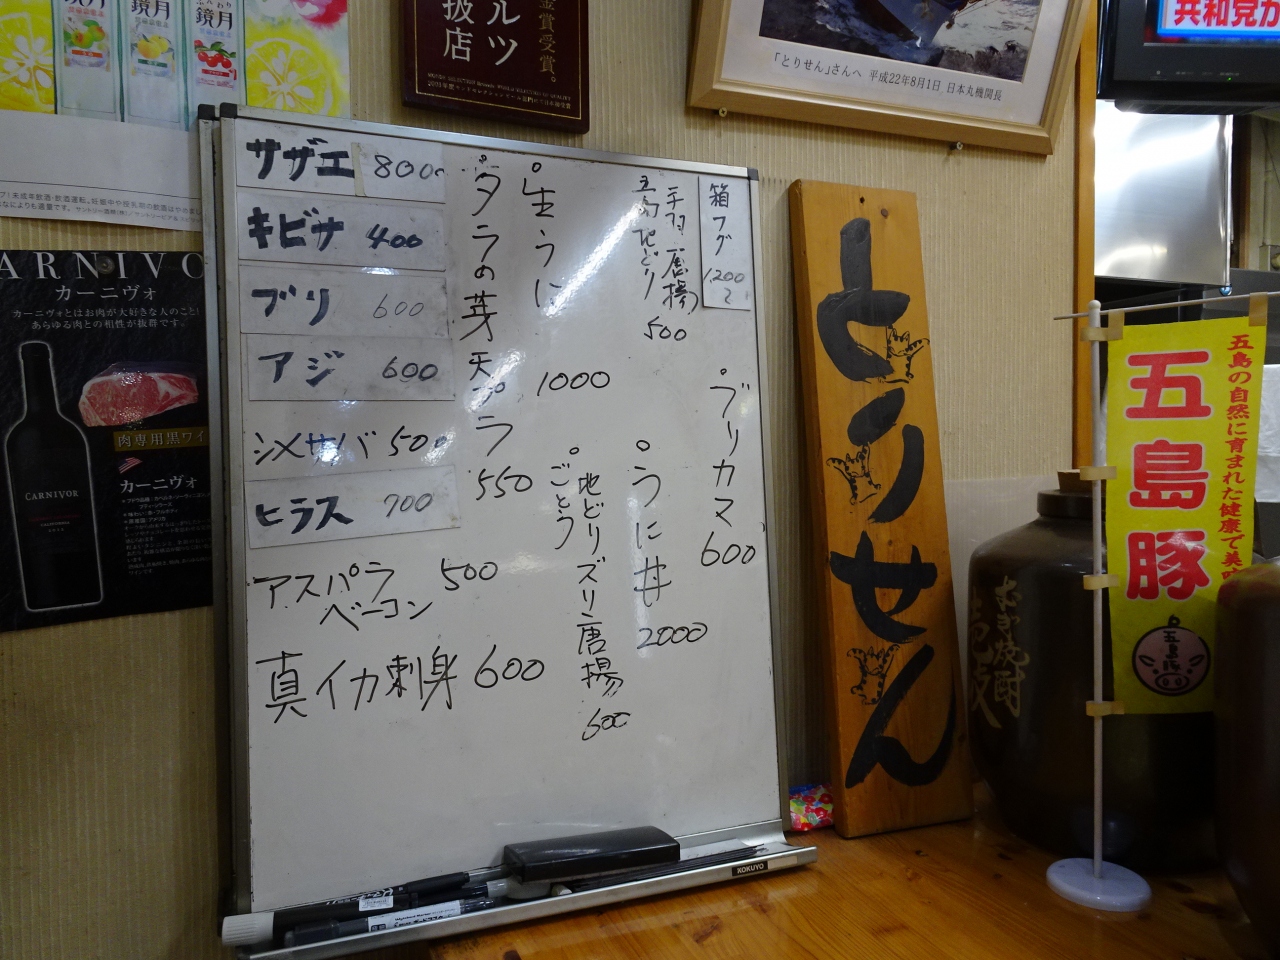 鏡月
鏡月
金賞受賞。
ルツ
扱店
「とりせん」さんへ 平成22年8月1日 日本丸機関長
共和党が
サザエ 800
キビナ 400
ブリ 600
アジ 600
シメサバ 500
ヒラス 700
アスパラ
ベーコン 500
真イカ刺身 600
箱フグ
1,200
手羽唐揚
五島地どり
500
ブリカマ
600
。生うに
1000
。タラの芽天プラ
550
。うに丼
2000
。ごとう
地どりズリ唐揚
600
KOKUYO
とりせん
五島の自然に育まれた健康で美味
五島豚
むぎ焼酎
ARNIVO
カーニヴォ
カーニヴォとはお肉が大好きな人のこと!
あらゆる肉との相性が抜群です。
肉専用黒ワイ
カーニヴォ
CARNIVOR